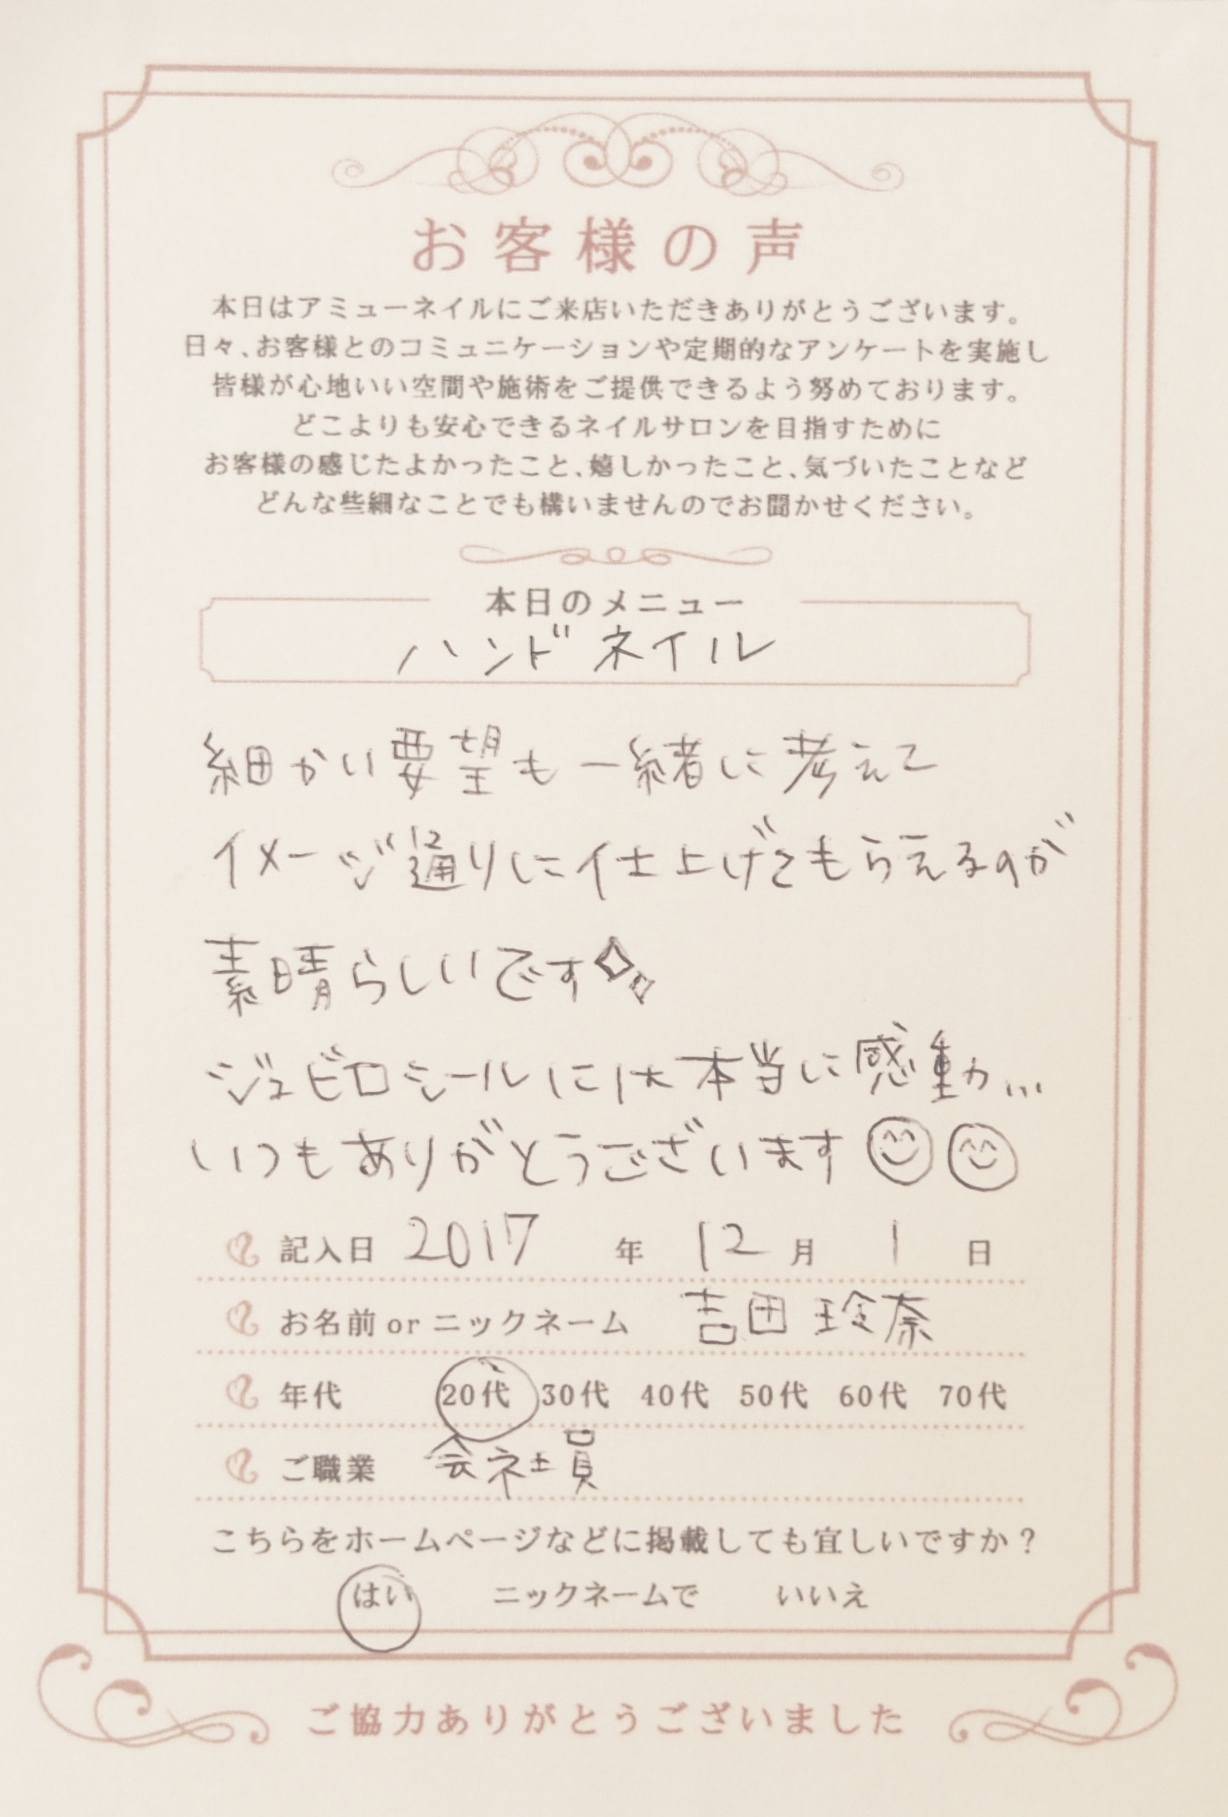 お客様の声
本日はアミューネイルにご来店いただきありがとうございます。
日々、お客様とのコミュニケーションや定期的なアンケートを実施し
皆様が心地いい空間や施術をご提供できるよう努めております。
どこよりも安心できるネイルサロンを目指すために
お客様の感じたよかったこと、嬉しかったこと、気づいたことなど
どんな些細なことでも構いませんのでお聞かせください。
本日のメニュー
ハンドネイル
細かい要望も一緒に考えて
イメージ通りに仕上げてもらえるのが
素晴らしいです
ジュビロシールには本当に感動...
いつもありがとうございます
記入日 2017 年 12 月 1 日
お名前 or ニックネーム 吉田 玲奈
年代 20代 30代 40代 50代 60代 70代
ご職業 会社員
こちらをホームページなどに掲載しても宜しいですか？
はい ニックネームで いいえ
ご協力ありがとうございました